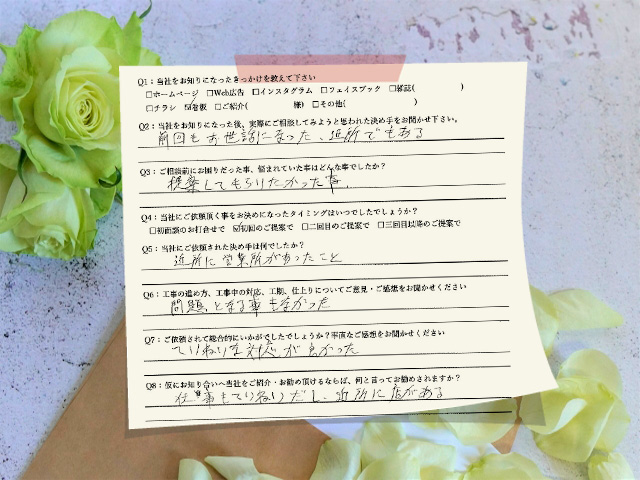 Q1：当社をお知りになったきっかけを教えて下さい
□ホームページ □Web広告 □インスタグラム □フェイスブック □雑誌( )
□チラシ ☑看板 □ご紹介( 様) □その他( )
Q2：当社をお知りになった後、実際にご相談してみようと思われた決め手をお聞かせ下さい。
前回もお世話になった、近所でもある
Q3：ご相談前にお困りだった事、悩まれていた事はどんな事でしたか？
提案してもらいたかった事、
Q4：当社にご依頼頂く事をお決めになったタイミングはいつでしたでしょうか？
□初面談のお打合せで ☑初回のご提案で □二回目のご提案で □三回目以降のご提案で
Q5：当社にご依頼された決め手は何でしたか？
近所に営業所があったこと
Q6：工事の進め方、工事中の対応、工期、仕上りについてご意見・ご感想をお聞かせください
問題となる事もなかった
Q7：ご依頼されて総合的にいかがでしたでしょうか？率直なご感想をお聞かせください
ていねいな対応が良かった
Q8：仮にお知り合いへ当社をご紹介・お勧め頂けるならば、何と言ってお勧めされますか？
仕事もていねいだし、近所に店がある